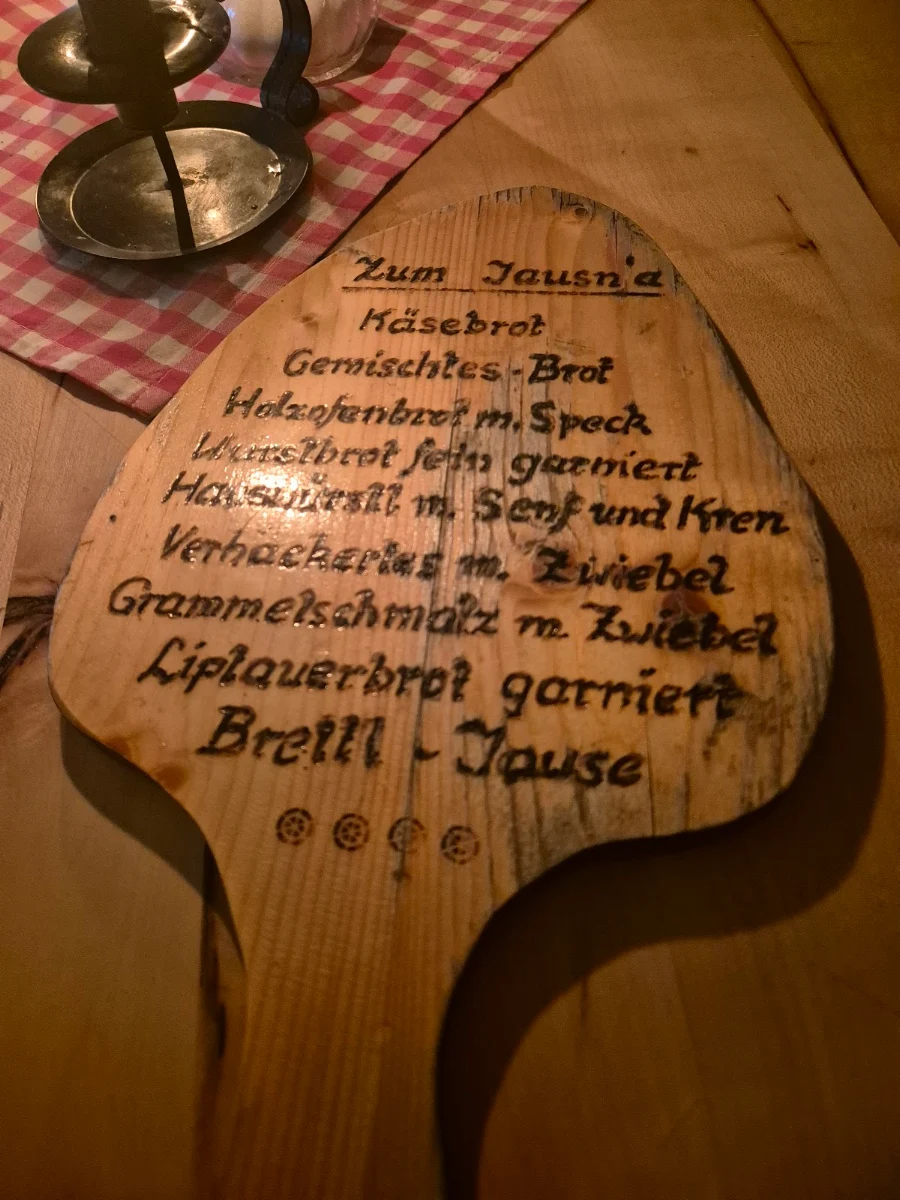 Zum Jausn'a
Käsebrot
Gemischtes-Brot
Holzofenbrot m. Speck
Wurstbrot fein garniert
Hauswürstl m. Senf und Kren
Verhackertes m. Zwiebel
Grammelschmalz m. Zwiebel
Liptauerbrot garniert
Brettl - Jause